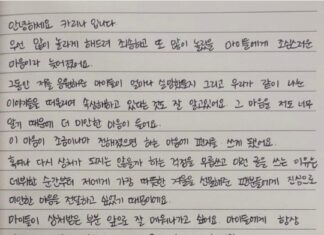 안녕하세요 카리나 입니다
우선 많이 놀라게 해드려 죄송하고 또 많이 놀랐을 마이들에게 조심스러운
마음이라 늦어졌어요.
그동안 저를 응원해준 마이들이 얼마나 실망했을지 그리고 우리가 같이 나눈
이야기들을 떠올리며 속상해하고 있다는 것도 잘 알고있어요. 그 마음을 저도 너무
알기 때문에 더 미안한 마음이 들어요.
이 마음이 조금이나마 전해졌으면 하는 마음에 편지를 쓰게 됐어요.
혹여나 다시 상처가 되지는 않을까 하는 걱정을 무릅쓰고 이런 글을 쓰는 이유는
데뷔한 순간부터 저에게 가장 따뜻한 겨울을 선물해준 팬분들에게 진심으로
미안한 마음을 전달하고 싶었기 때문이에요.
마이들이 상처받은 부분 앞으로 잘 메워나가고 싶어요 마이들에게 항상